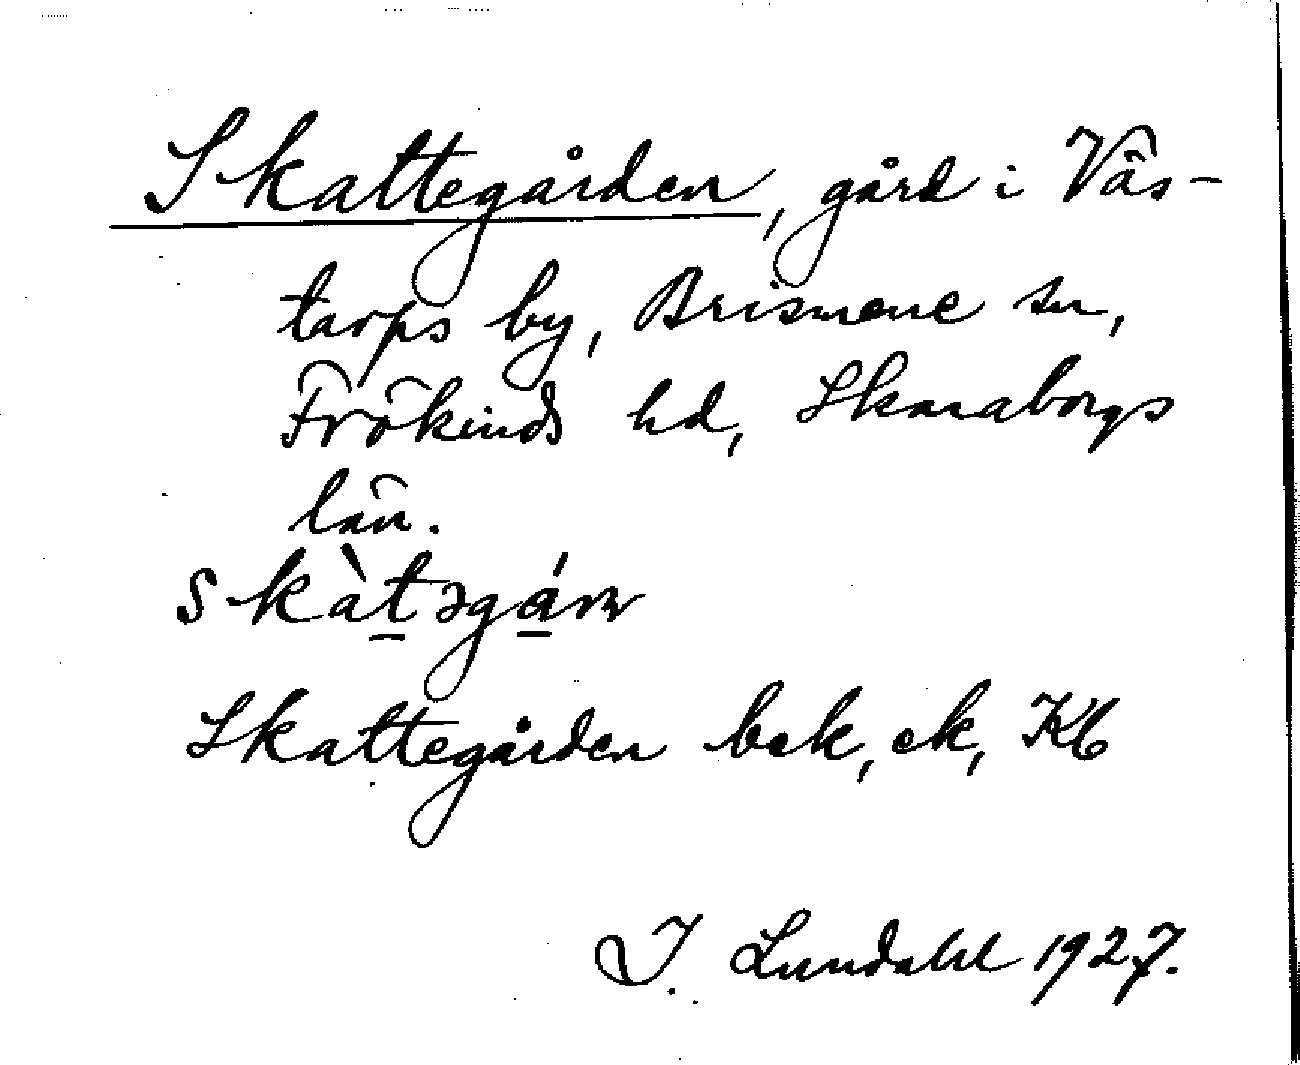 Skattegården, gård i Väs-
tarps by, Brismene sn,
Frökinds hd, Skaraborgs
län.
Skattegården bek, ek, Kb
I. Lundahl 1927.